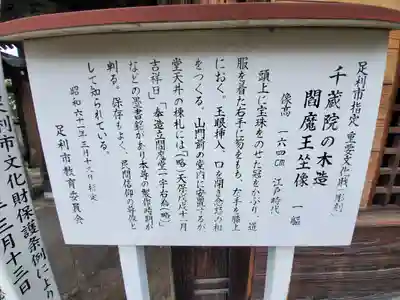 足利市指定 重要文化財(彫刻)
千蔵院の木造
閻魔王坐像 一軀
像高 一六四㎝ 江戸時代
頭上に宝珠をのせた冠をかぶり、道
服を着た右手に笏をもち、左手を膝上
におく。玉眼挿入、口を開き忿怒の相
をつくる。山門前の堂内に安置するが、
堂天井の棟札には「(略)天保
十一月
吉祥日」「奉造立閻魔堂一宇右為(略)」
などの墨書銘があり本尊の製作時期が
判る。保存もよく、民間信仰の尊像と
して知られている。
昭和六十一年三月十三日指定
足利市教育委員会
足利市文化財保護条例により
三月十三日